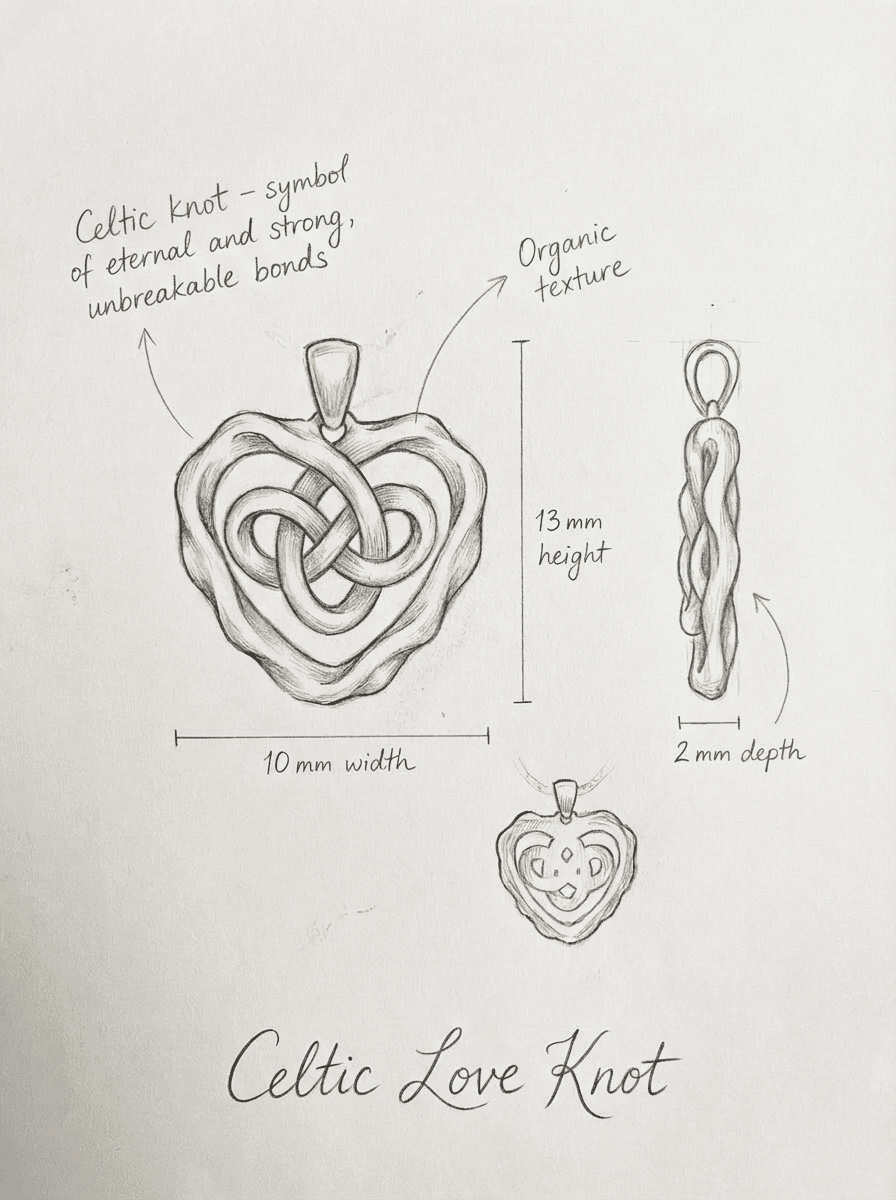 Celtic knot – symbol
of eternal and strong,
unbreakable bonds
Organic
texture
13 mm
height
10 mm width
2 mm depth
Celtic Love Knot